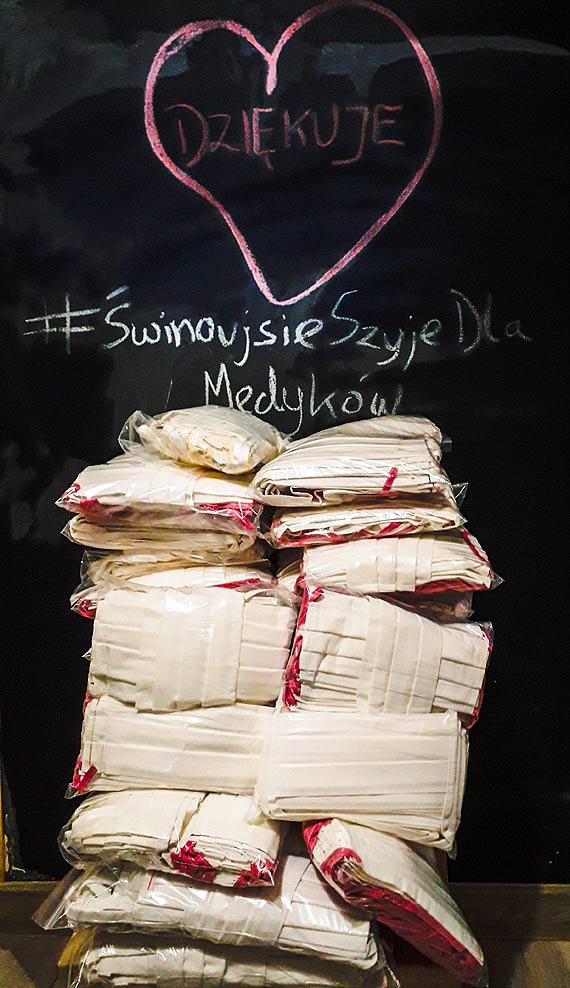 DZIĘKUJE
#ŚwinoujsieSzyjeDla
Medyków